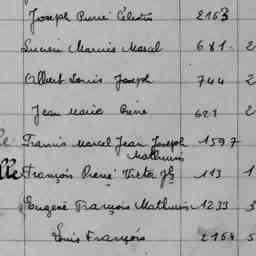 Joseph Pierre Célestin 2163
Lucien Marius Marcel 681 2
Albert Louis Joseph 744 2
Jean Marie 621 2
Francis Marcel Jean Joseph 1597
Mathurin
François Pierre Victor 113 1
Eugène François Mathurin 1233 3
Louis François 2164 5